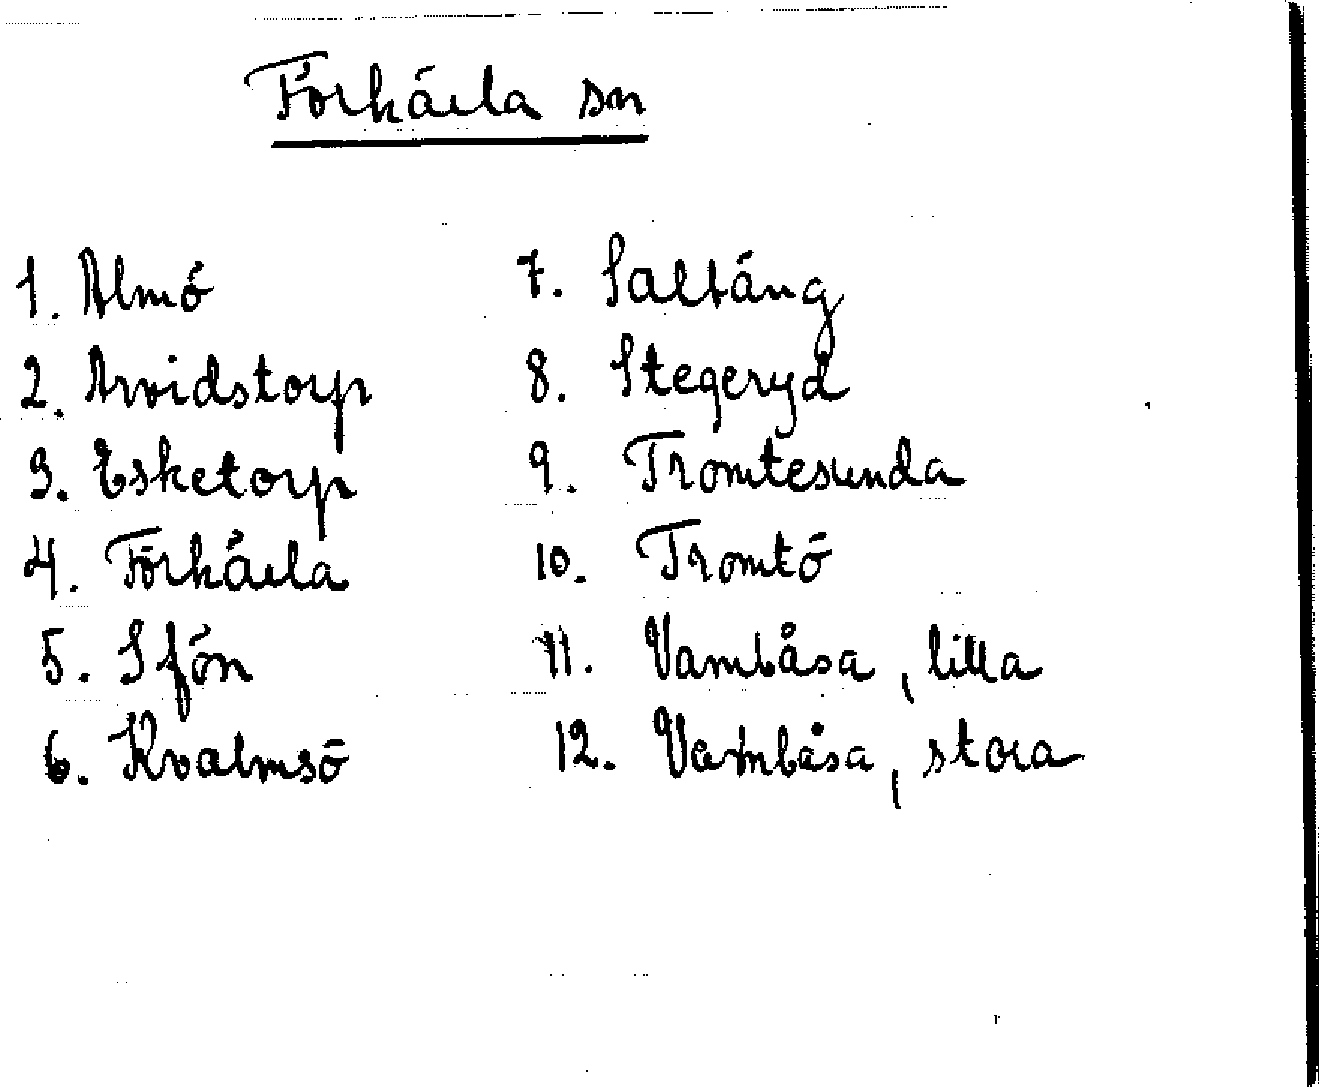 Förkärla sn
1. Almö
2. Arvidstorp
3. Esketorp
4. Förkärla
5. Ifön
6. Kvalmsö
7. Saltäng
8. Stegeryd
9. Tromtesunda
10. Tromtö
11. Vambåsa, lilla
12. Vambåsa, stora